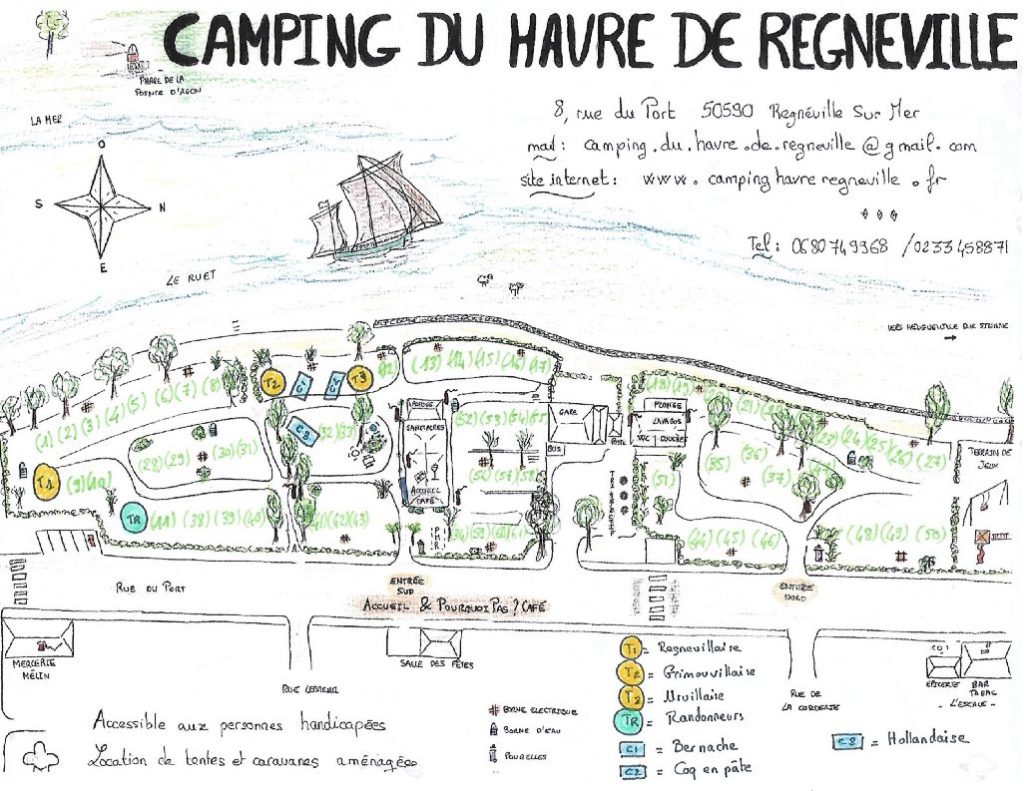 CAMPING DU HAVRE DE REGNEVILLE
PHARE DE LA
POINTE D'AGON
8, rue du Port 50590 Regnéville Sur Mer
mail: camping.du.havre.de.regneville@gmail.com
site internet: www.campinghavreregneville.fr
Tel: 0680749368 / 0233458871
LA MER
O
S
N
E
LE RUET
(13) (14) (15) (16) (17)
(12)
(18) (19)
(1) (2) (3) (4) (5) (6) (7) (8)
T2
C1
C2
T3
C3
(21)
(23) (24) (25) (26) (27)
SANITAIRES
ACCUEIL
CAFÉ
(52) (53) (54) (55)
GARE
BUS
PLONGE
LAVABOS
WC
TERRAIN DE
JEUX
(28) (29) (30) (31)
(32)
(35) (36)
(37)
(56) (57) (58)
(51)
T1
(9)
TR
(11) (38) (39) (40)
(42) (43)
PMR
(59) (60)
(44) (45) (46)
(48) (49) (50)
RUE DU PORT
ENTRÉE
SUD
ACCUEIL & POURQUOI PAS? CAFÉ
ENTRÉE
NORD
MERCERIE
MÉLIN
SALLE DES FÊTES
RUE DE
LA CORDERIE
EPICERIE
BAR
TABAC
- L'ESCALE -
T1 = Regnevillaise
T2 = Grimouvillaise
T3 = Urvillaise
TR = Randonneurs
C1 = Bernache
C2 = Coq en pâte
C3 = Hollandaise
BORNE ELECTRIQUE
BORNE D'EAU
POUBELLES
Accessible aux personnes handicapées
Location de tentes et caravanes aménagées